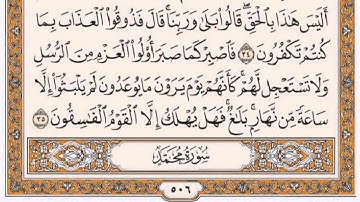 أَلَيْسَ هَٰذَا بِٱلْحَقِّ ۖ قَالُوا۟ بَلَىٰ وَرَبِّنَا ۚ قَالَ فَذُوقُوا۟ ٱلْعَذَابَ بِمَا
كُنتُمْ تَكْفُرُونَ ٣٤ فَٱصْبِرْ كَمَا صَبَرَ أُو۟لُوا۟ ٱلْعَزْمِ مِنَ ٱلرُّسُلِ
وَلَا تَسْتَعْجِل لَّهُمْ ۚ كَأَنَّهُمْ يَوْمَ يَرَوْنَ مَا يُوعَدُونَ لَمْ يَلْبَثُوٓا۟ إِلَّا
سَاعَةً مِّن نَّهَارٍۭ ۚ بَلَٰغٌ ۚ فَهَلْ يُهْلَكُ إِلَّا ٱلْقَوْمُ ٱلْفَٰسِقُونَ ٣٥
سُورَةُ مُحَمَّد
٥٠٦